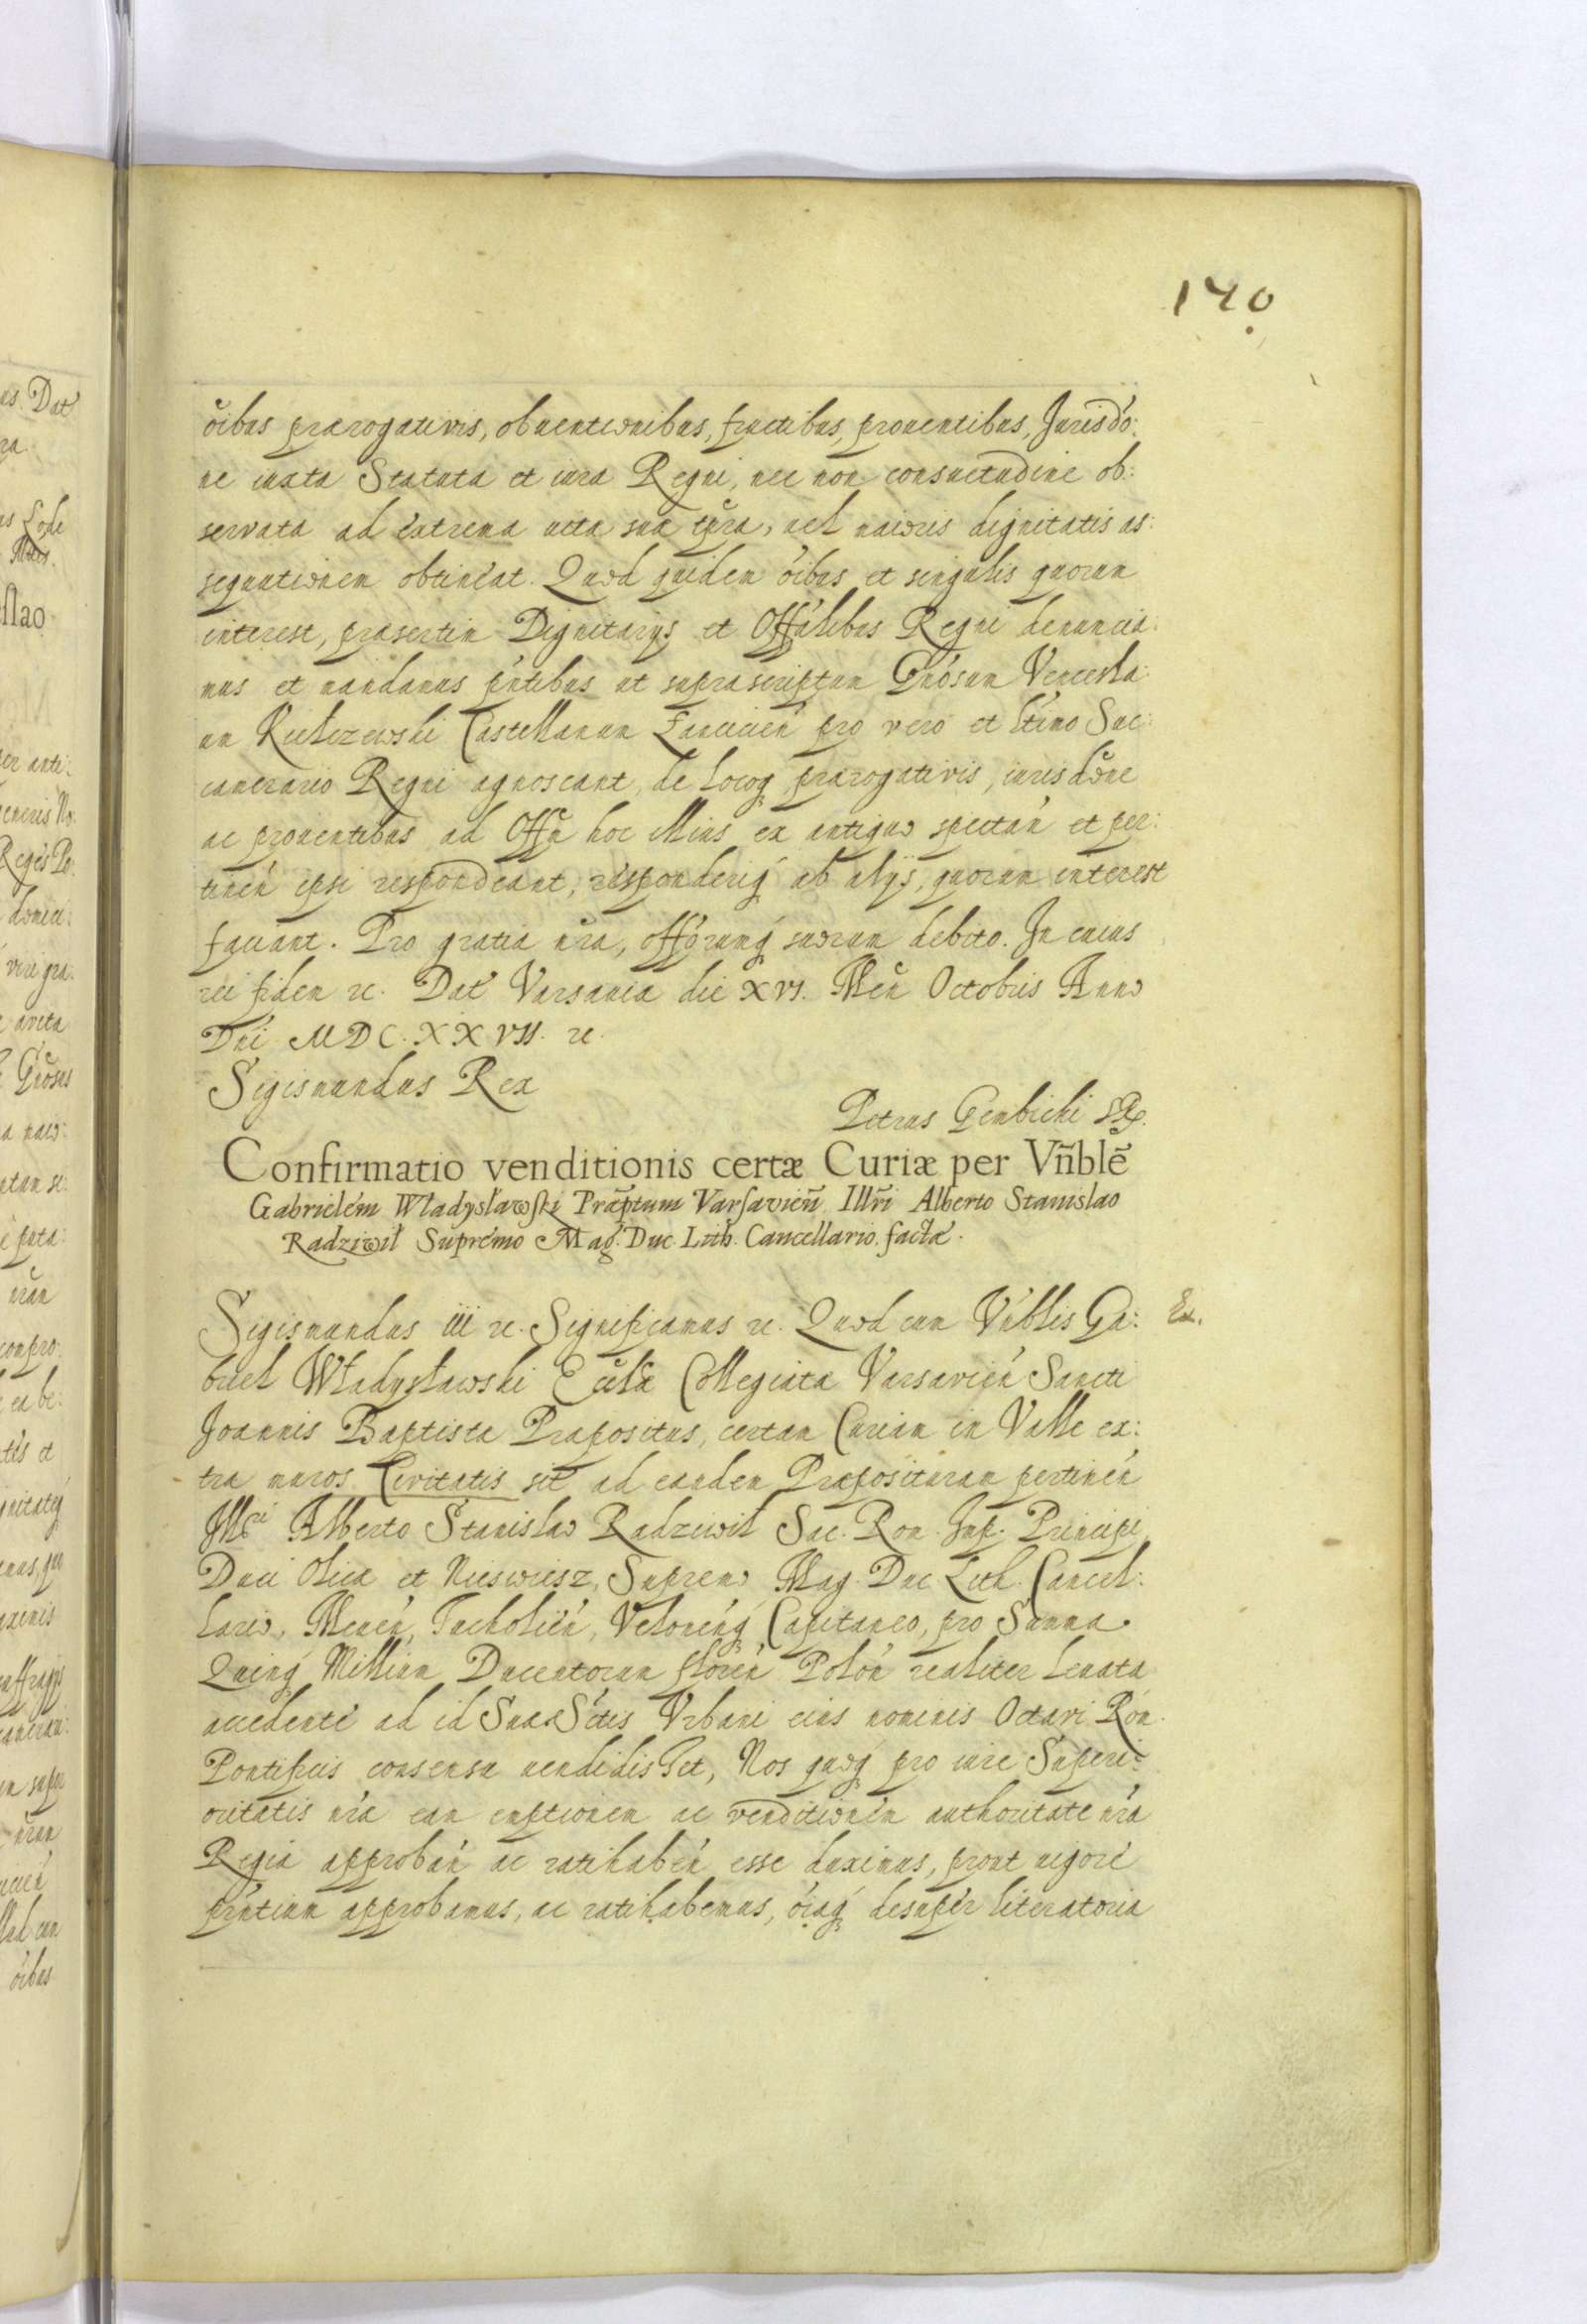 140
õibus prærogativis, obuentionibus, fructibus, prouentibus, Jurisdõ:
ne iuxta Statuta et iura Regni, nec non consuetudine ob:
servata ad extrema uitæ suæ tp̃ra, uel maioris dignitatis as:
sequutionem obtineat. Quod quidem õibus et singulis quorum
interest, præsertim Dignitarijs et Offãlibus Regni denuncia:
mus et mandamus pñtibus ut suprascriptum Gnõsum Vencesla:
um Kielczewski Castellanum Lancicieñ pro vero et ltĩmo Suc:
camerario Regni agnoscant, de locoq prærogativis, iurisdõne
ac prouentibus ad Offm̃ hoc Mius ex antiquo spectañ et per:
tineñ ipsi respondeant, responderiq ab alijs, quorum interest
faciant. Pro gratia nr̃a, offõrumq suorum debito. In cuius
rei fidem rc. Dat Varsauiæ die XVI. Meñ Octobris Anno
Dñi MDC.XXVII. rc.
Sigismundus Rex
Petrus Gembicki SR.
Confirmatio venditionis certæ Curiæ per Vñblẽ
Gabrielem Władysławski Præptum Varsavieñ Illr̃i Alberto Stanislao
Radziwił Supremo Mag. Duc. Lith. Cancellario factæ.
Sigismundus iii rc. Significamus rc. Quod cum Vñblis Ga: Ex.
briel Władysławski Eccłæ Collegiatæ Varsavieñ Sancti
Joannis Baptistæ Præpositus, certam Curiam in Valle ex:
tra muros Civitatis sit ad eandem Præposituram pertineñ
Illri Alberto Stanislao Radziwił Sac. Rom. Imp. Principi
Duci Olicæ et Nieswiesz, Supremo Mag. Duc Lith. Cancel:
lario, Meueñ, Tucholieñ, Veloneñq Capitaneo, pro Summa
Quinq Millium Ducentorum floreñ Poloñ realiter leuata
accedente ad id Suæ Sctĩs Vrbani eius nominis Octavi Rom.
Pontificis consensu uendidisset, Nos quoq pro iure Superi:
oritatis nr̃æ eam emptionem ac venditionem authoritate nr̃a
Regia approbañ ac ratihabeñ esse duximus, prout uigore
pñtium approbamus, ac ratihabemus, õiaq desuper literatoria